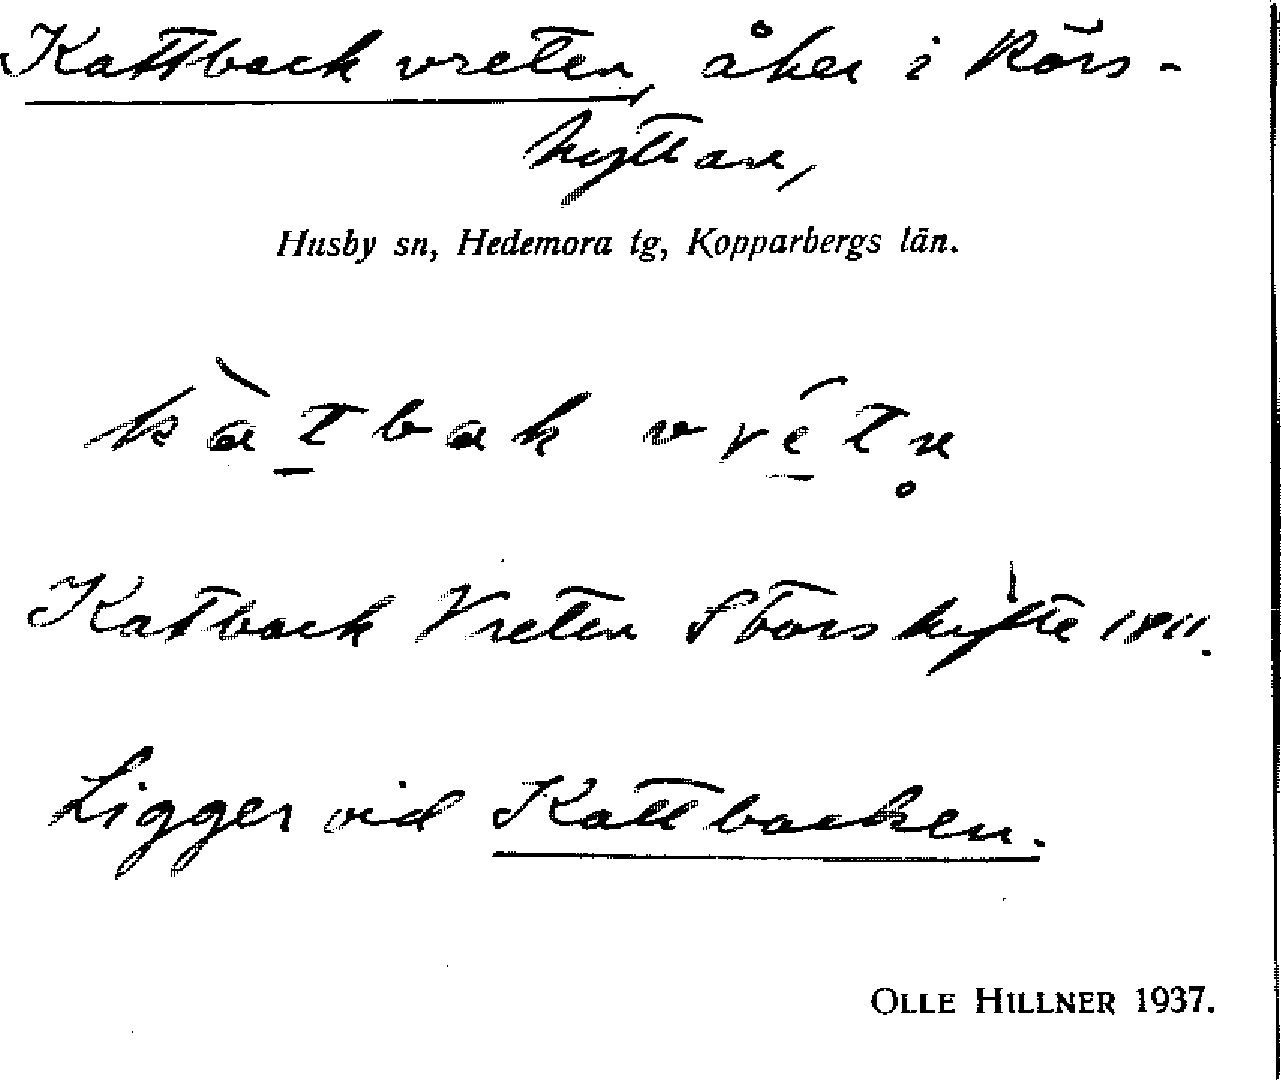 Kattback vreten, åker i Rörs-
hyttan,
Husby sn, Hedemora tg, Kopparbergs län.
kàt̲bak vré̲tn̥
Katback Vreten Storskifte 1811.
Ligger vid Kattbacken.
OLLE HILLNER 1937.